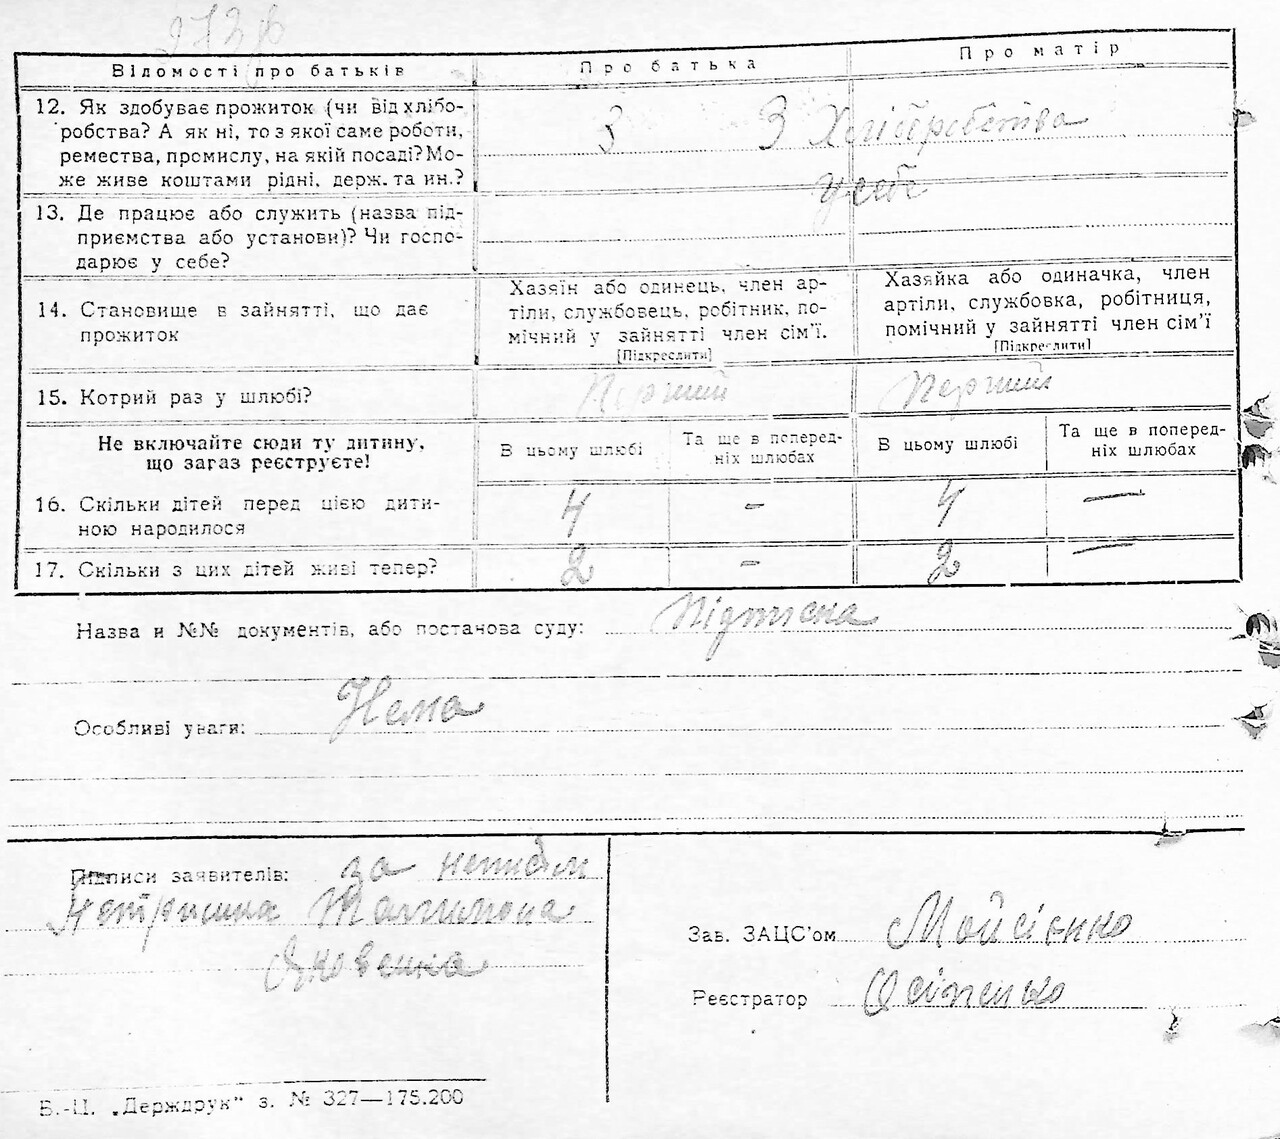 273
Відомості про батьків
Про батька
Про матір
12. Як здобуває прожиток (чи від хлібо-
робства? А як ні, то з якої саме роботи,
ремества, промислу, на якій посаді? Мо-
же живе коштами рідні, держ. та ин.?
З З Хліборобства
у себе
13. Де працює або служить (назва під-
приємства або установи)? Чи госпо-
дарює у себе?
14. Становище в зайнятті, що дає
прожиток
Хазяїн або одинець, член ар-
тіли, службовець, робітник, по-
мічний у зайнятті член сім'ї.
[Підкреслити]
Хазяйка або одиначка, член
артіли, службовка, робітниця,
помічний у зайнятті член сім'ї
[Підкреслити]
15. Котрий раз у шлюбі?
Перший
Перший
Не включайте сюди ту дитину,
що зараз реєструєте!
В цьому шлюбі
Та ще в поперед-
ніх шлюбах
В цьому шлюбі
Та ще в поперед-
ніх шлюбах
16. Скільки дітей перед цією дити-
ною народилося
4 - 4 —
17. Скільки з цих дітей живі тепер?
2 - 2 —
Назва и №№ документів, або постанова суду: Підписка
Особливі уваги: Нема
Підписи заявителів: за неписьм
Яковенка
Зав. ЗАЦС'ом Мойсієнко
Реєстратор Осіпенко
Б.-Ц. „Держдрук" з. № 327—175.200